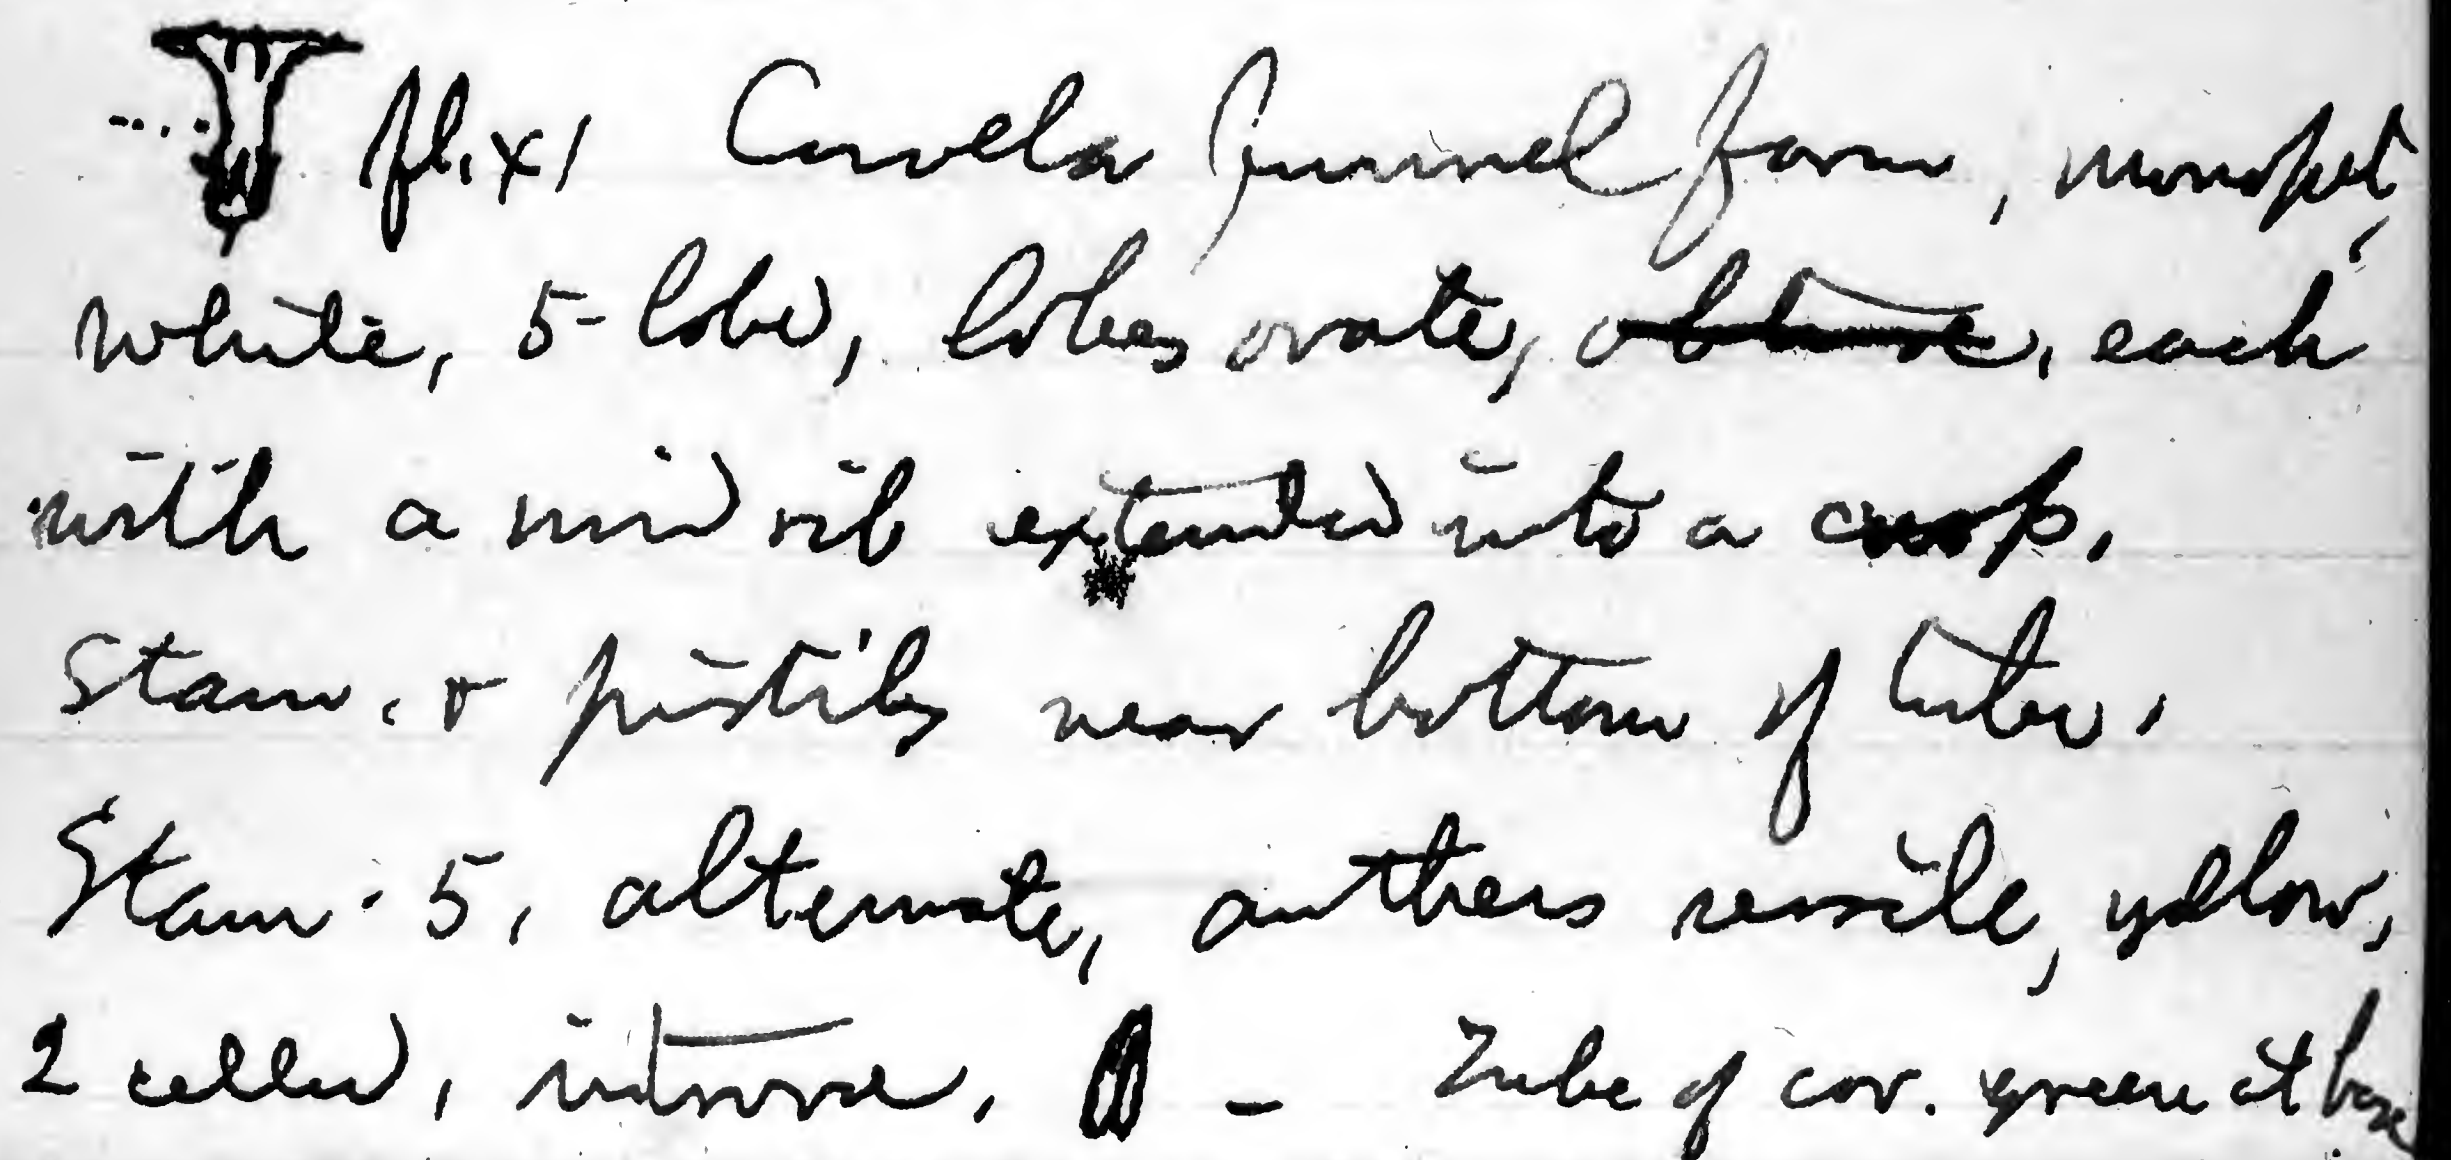 fl. x 1 Corolla funnel form, monopet,
white, 5-lobed, lobes ovate, obtuse, each
with a mid rib extended into a cusp.
Stam. & pistils near bottom of tube.
Stam. 5, alternate, anthers sessile, yellow,
2 celled, introrse, - Tube of cor. green at base